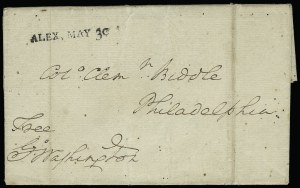 ALEX. MAY 30
Colo. Clemt. Biddle
Philadelphia
Free
Go. Washington